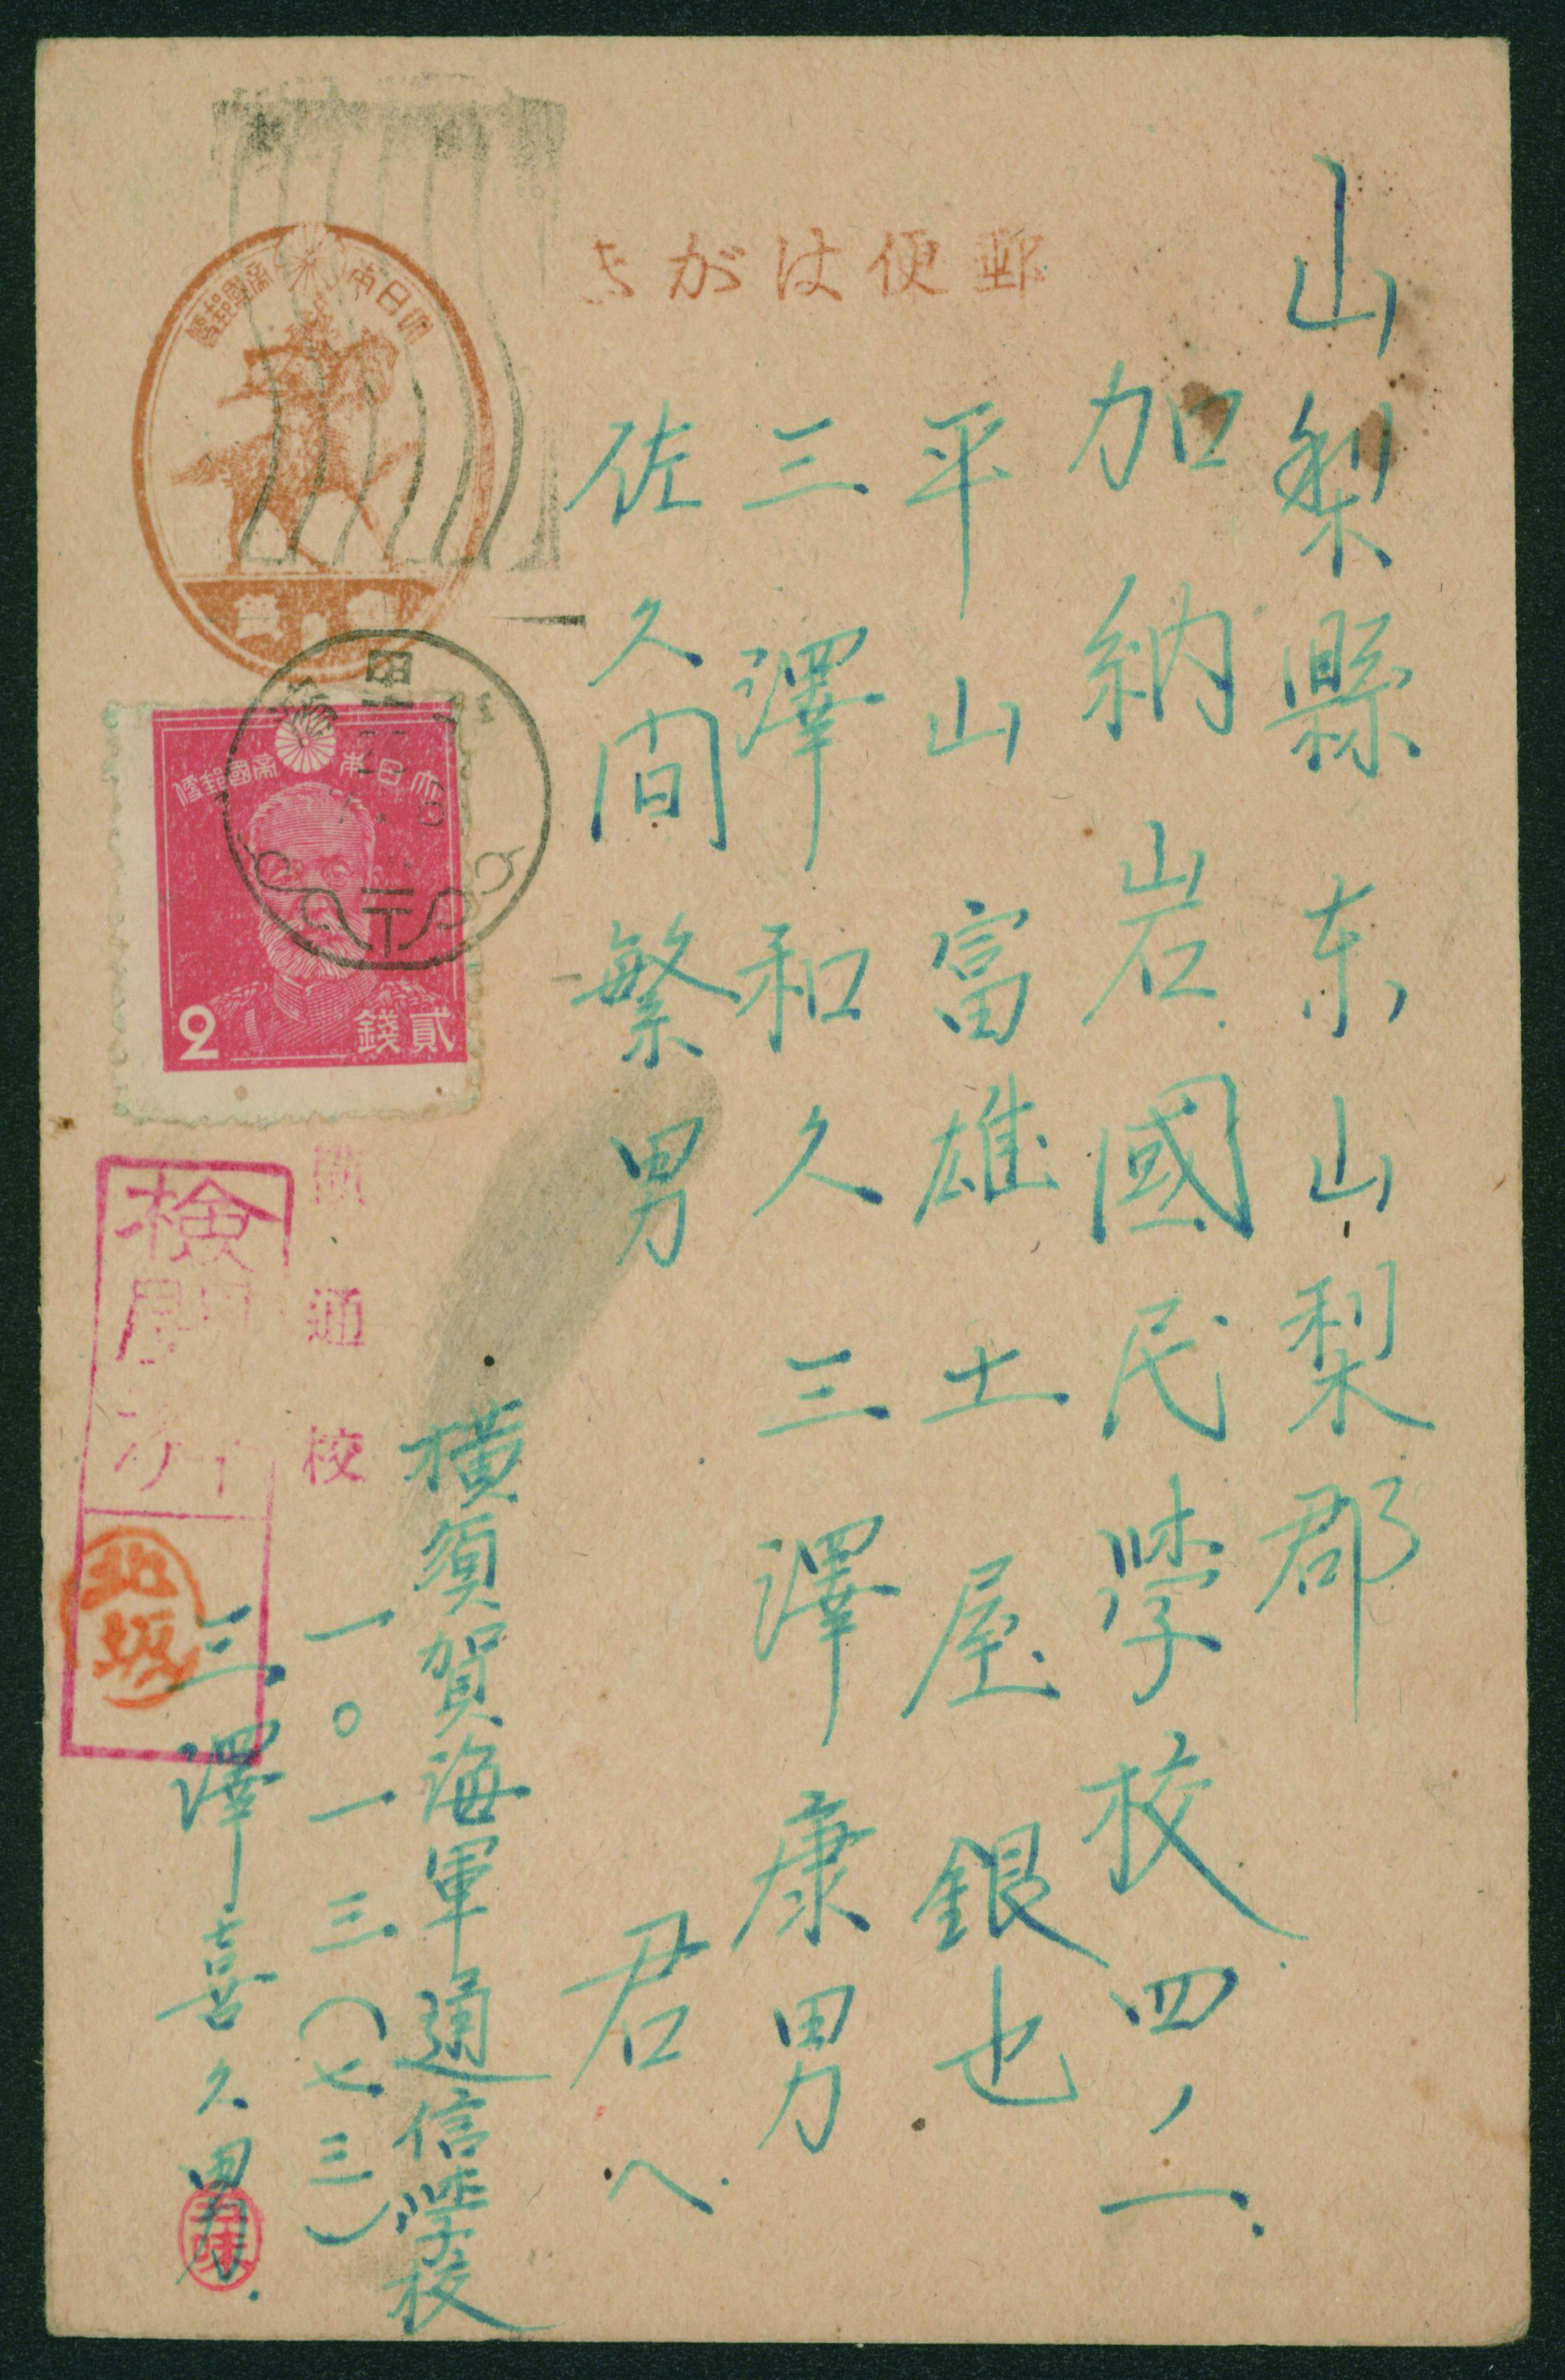 郵便はがき
山梨縣东山梨郡
加納岩國民学校四ノ二
平山富雄 土屋銀也
三澤和久 三澤康男
佐久間繁男 君へ
横須賀海軍通信学校
一〇一三(七三)
三澤喜久男
大日本帝國郵便
大日本帝國郵便
2 貳錢
通校
検閲済
北坂